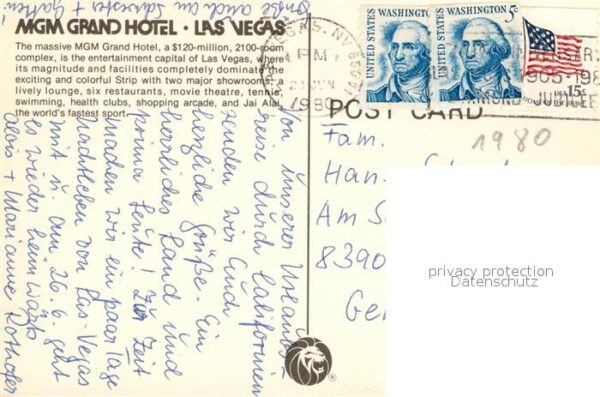 Grüße auch an Schwester + Gatten!
MGM GRAND HOTEL · LAS VEGAS
The massive MGM Grand Hotel, a $120-million, 2100-room
complex, is the entertainment capital of Las Vegas, where
its magnitude and facilities completely dominate the
exciting and colorful Strip with two major showrooms, a
lively lounge, six restaurants, movie theatre, tennis,
swimming, health clubs, shopping arcade, and Jai Alai,
the world's fastest sport.
Von unserer Urlaubs-
reise durch Californien
senden wir Euch
herzliche Grüße. Ein
herrliches Land und
prima Leute! Zur Zeit
machen wir ein paar Tage
Nachtleben von Las-Vegas
mit u. am 26.6. geht
es wieder heimwärts
Alois + Marianne
UNITED STATES WASHINGTON
UNITED STATES WASHINGTON 5c
USA 15c
PM
1980
NV
DIAMOND JUBILEE
POST CARD
1980
Fam.
Han
Am S
8390
Ge
privacy protection
Datenschutz